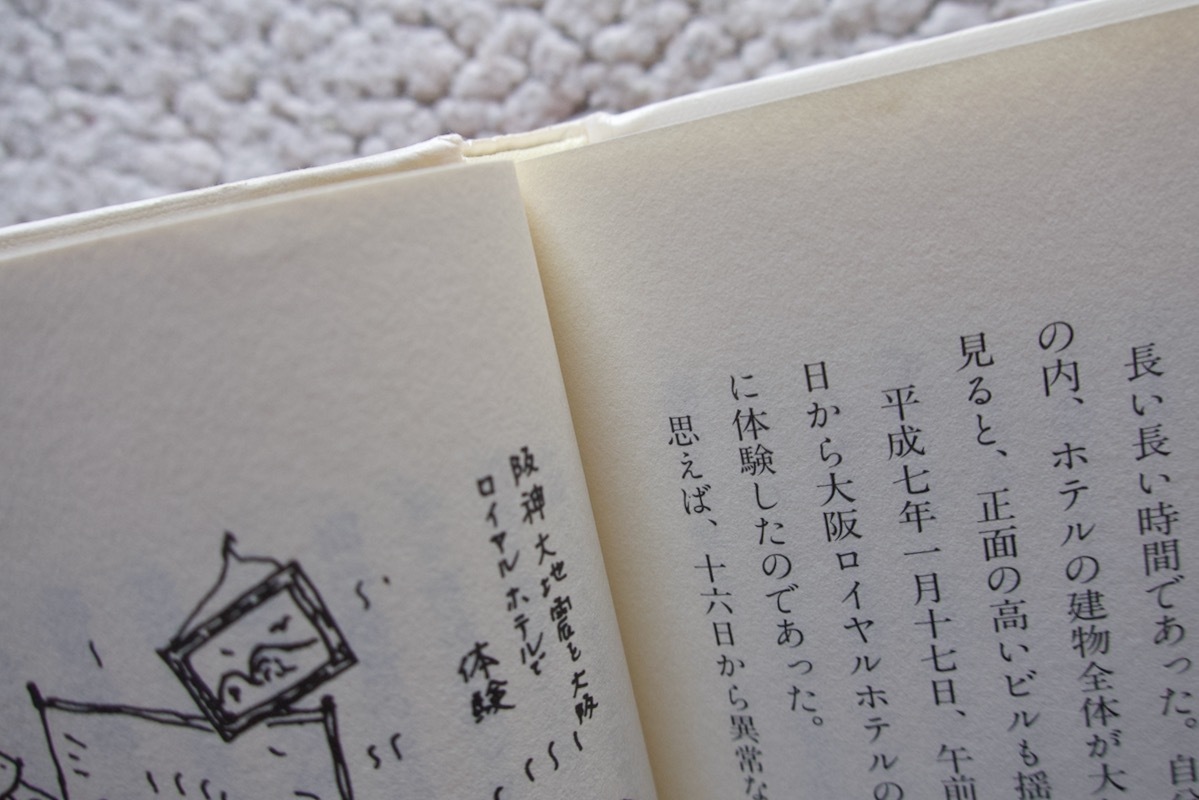 長い長い時間であった。自分
の内、ホテルの建物全体が大
見ると、正面の高いビルも揺
平成七年一月十七日、午前
日から大阪ロイヤルホテルの
に体験したのであった。
思えば、十六日から異常な
阪神大地震を大阪ー
ロイヤルホテルで
体験